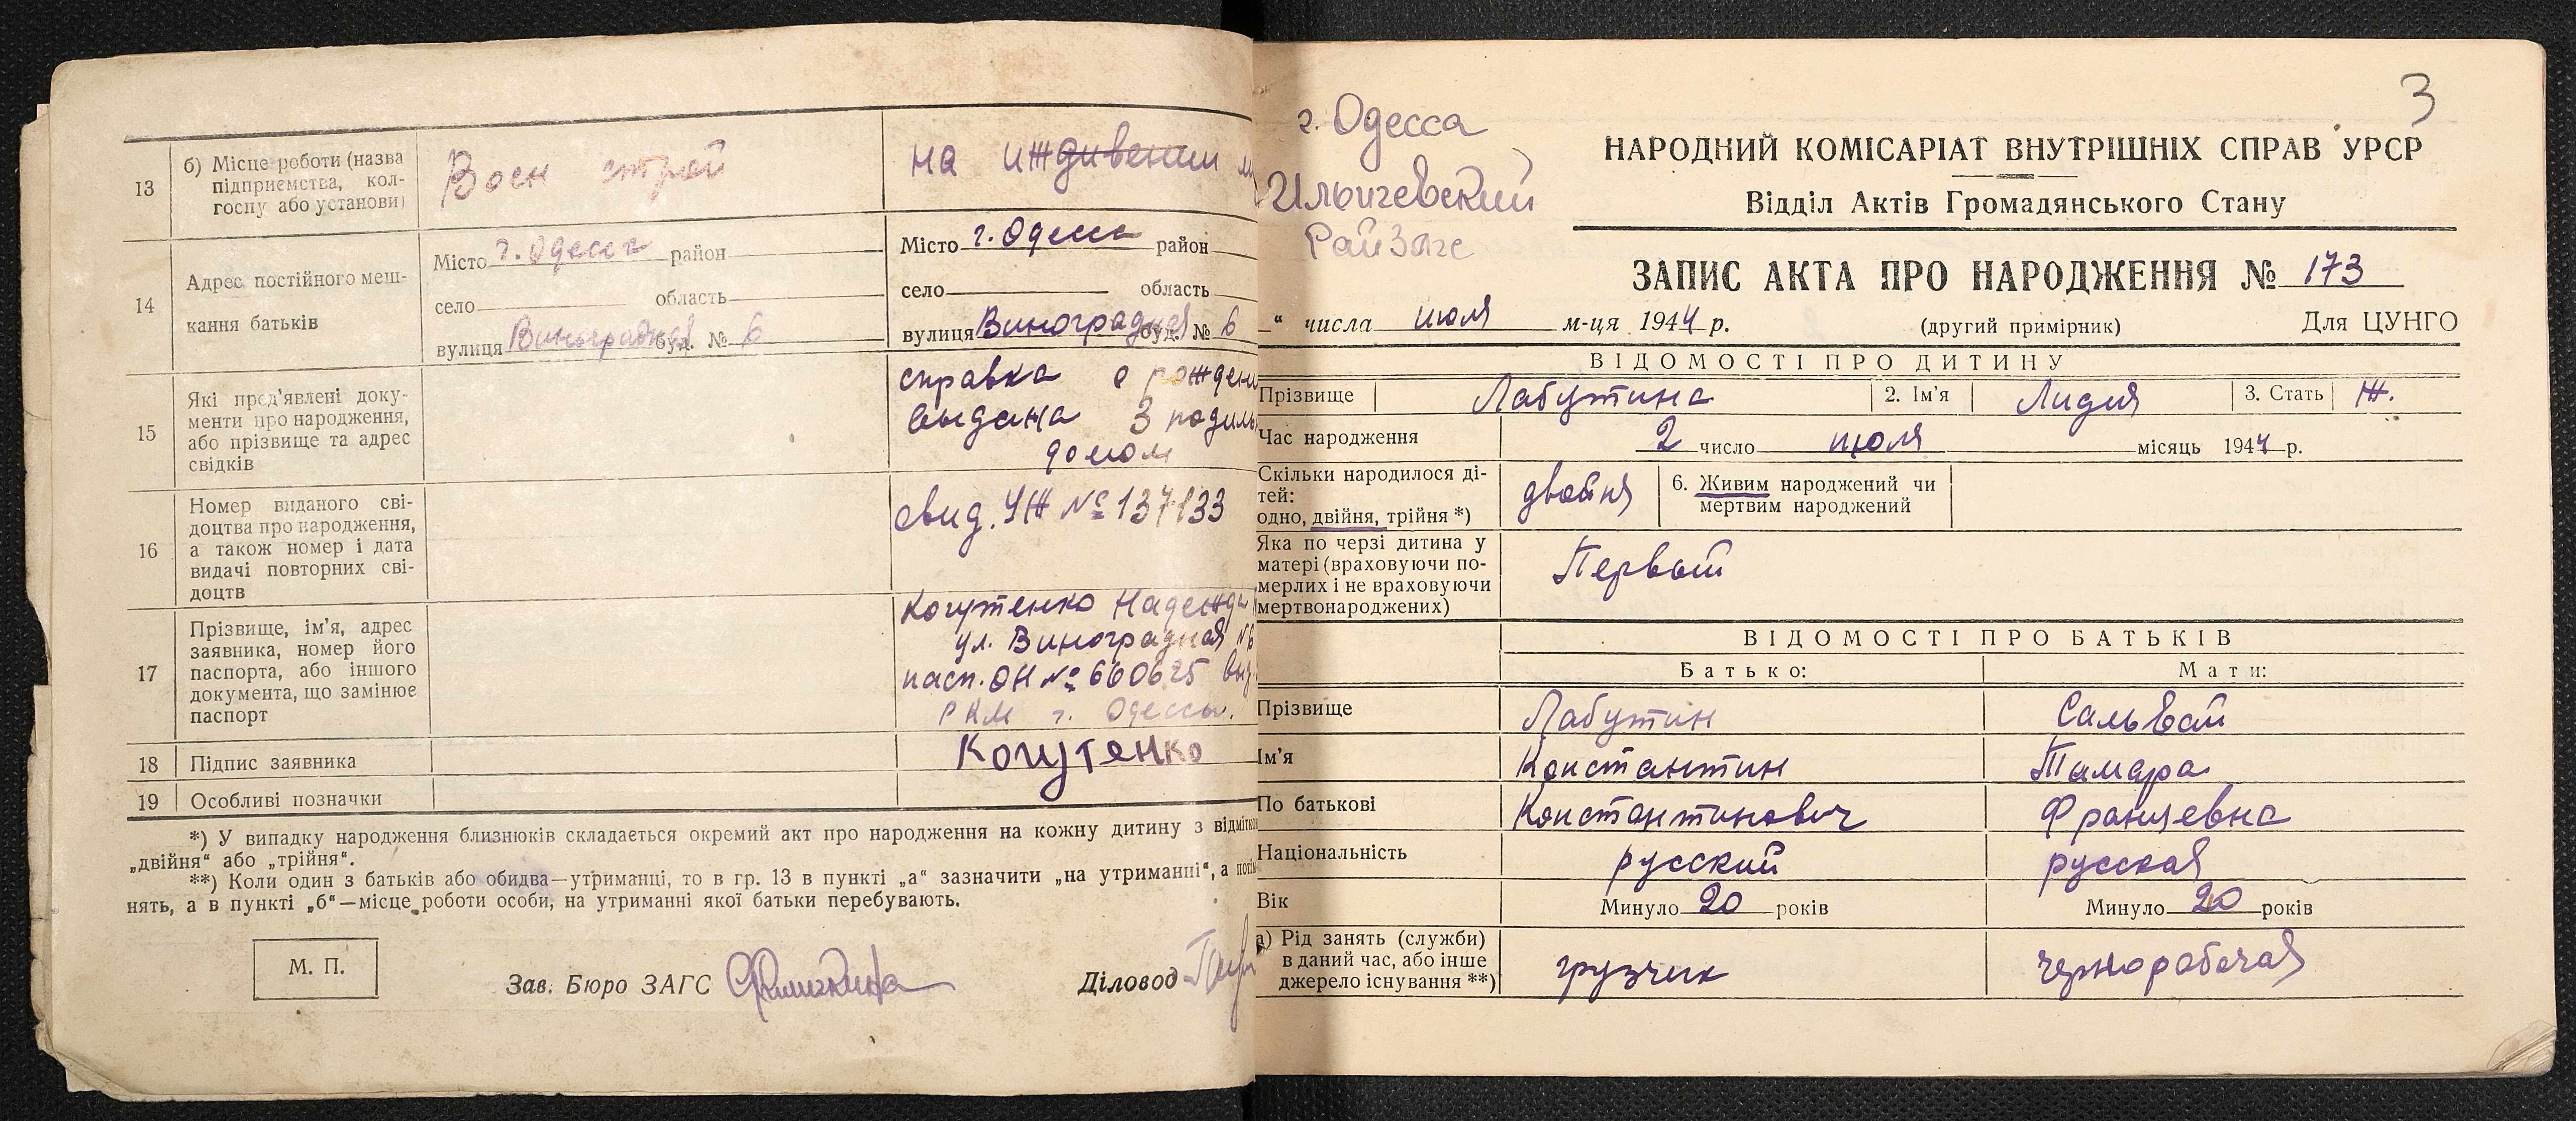 13
б) Місце роботи (назва
підприємства, кол-
госпу або установи)
Воен строй
на иждивении
14
Адрес постійного меш-
кання батьків
Місто г. Одесса район
село область
вулиця Виноградная буд. № 6
Місто г. Одесса район
село область
вулиця Виноградная буд. № 6
15
Які пред'явлені доку-
менти про народження,
або прізвище та адрес
свідків
справка о рожден
выдана 3 родиль
домом
16
Номер виданого сві-
доцтва про народження,
а також номер і дата
видачі повторних сві-
доцтв
свид. УЖ № 137133
17
Прізвище, ім'я, адрес
заявника, номер його
паспорта, або іншого
документа, що замінює
паспорт
Когутенко Надежда
ул. Виноградная №6
пасп. ОН № 660625 выд
РКМ г. Одессы.
18
Підпис заявника
Когутенко
19
Особливі позначки
*) У випадку народження близнюків складається окремий акт про народження на кожну дитину з відміткою
„двійня“ або „трійня“.
**) Коли один з батьків або обидва—утриманці, то в гр. 13 в пункті „а“ зазначити „на утриманні“, а
нять, а в пункті „б“—місце роботи особи, на утриманні якої батьки перебувають.
М. П.
Зав. Бюро ЗАГС
Діловод
3
г. Одесса
Ильичевский
РайЗагс
НАРОДНИЙ КОМІСАРІАТ ВНУТРІШНІХ СПРАВ УРСР
Відділ Актів Громадянського Стану
ЗАПИС АКТА ПРО НАРОДЖЕННЯ № 173
“ числа июля м-ця 1944 р.
(другий примірник)
Для ЦУНГО
ВІДОМОСТІ ПРО ДИТИНУ
Прізвище Лабутина 2. Ім'я Лидия 3. Стать Ж.
Час народження 2 число июля місяць 1944 р.
Скільки народилося ді-
тей:
одно, двійня, трійня *)
двойня
6. Живим народжений чи
мертвим народжений
Яка по черзі дитина у
матері (враховуючи по-
мерлих і не враховуючи
мертвонароджених)
Первый
ВІДОМОСТІ ПРО БАТЬКІВ
Батько: Мати:
Прізвище Лабутин Сальвай
Ім'я Константин Тамара
По батькові Константинович Францевна
Національність русский русская
Вік Минуло 20 років Минуло 20 років
а) Рід занять (служби)
в даний час, або інше
джерело існування **)
грузчик
чернорабочая